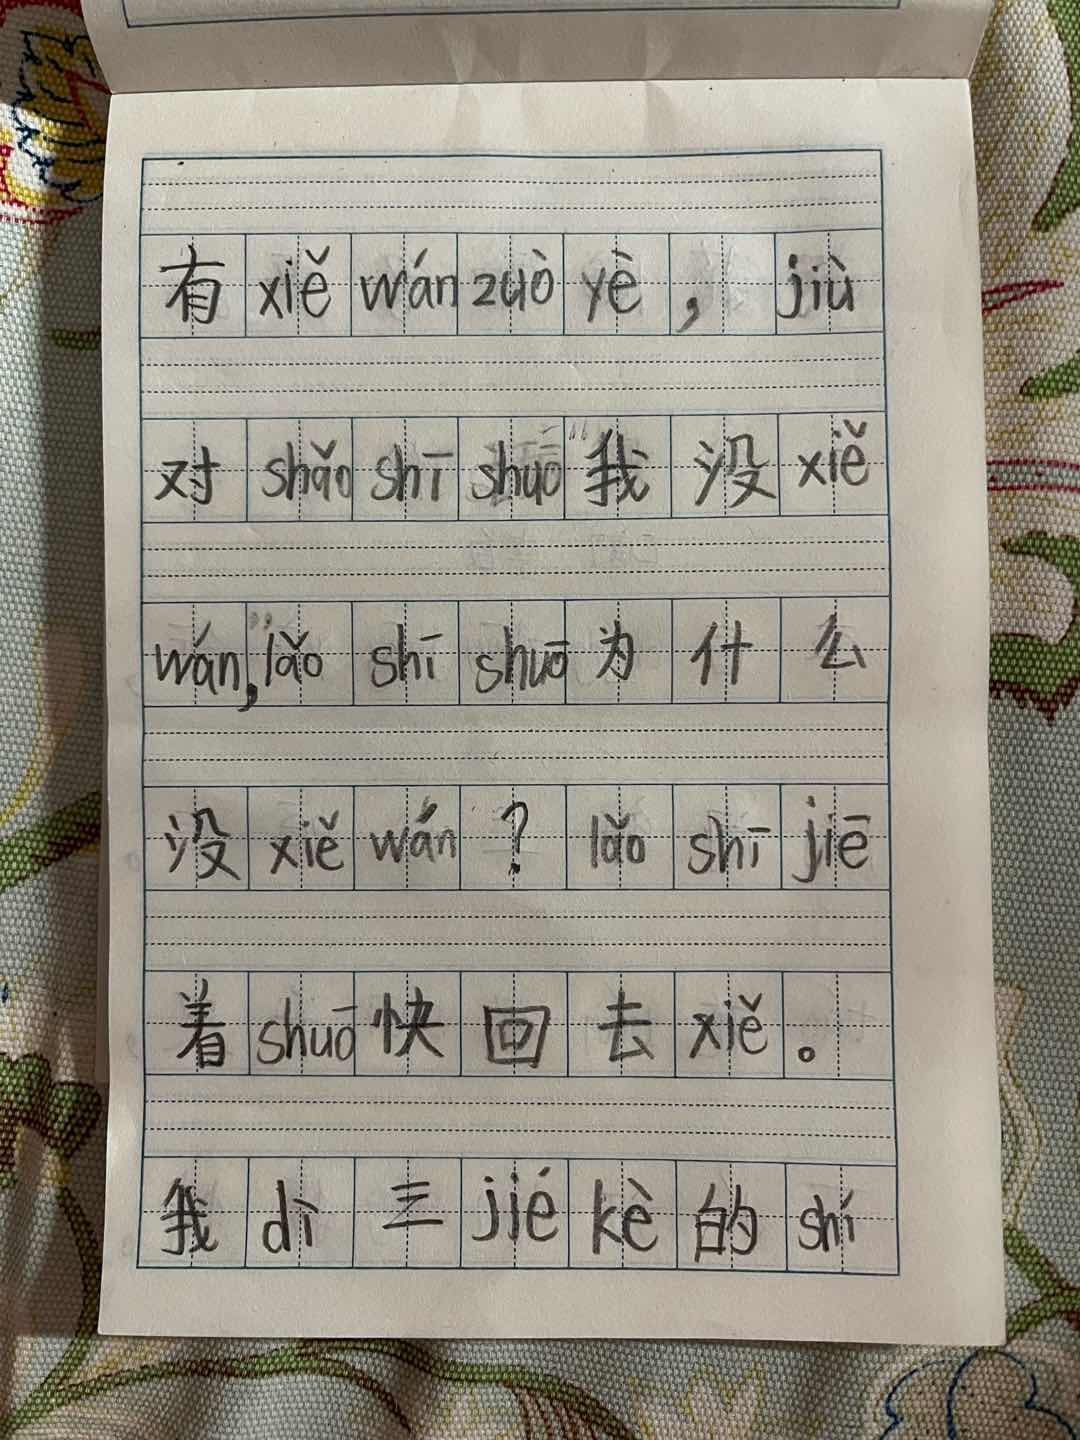 有 xiě wán zuò yè ， jiù
对 shǎo shī shuo “我 没 xiě
wán,”lǎo shī shuō 为 什 么
没 xiě wán ？ lǎo shī jiē
着 shuō 快 回 去 xiě 。
我 dì 三 jié kè 的 shí